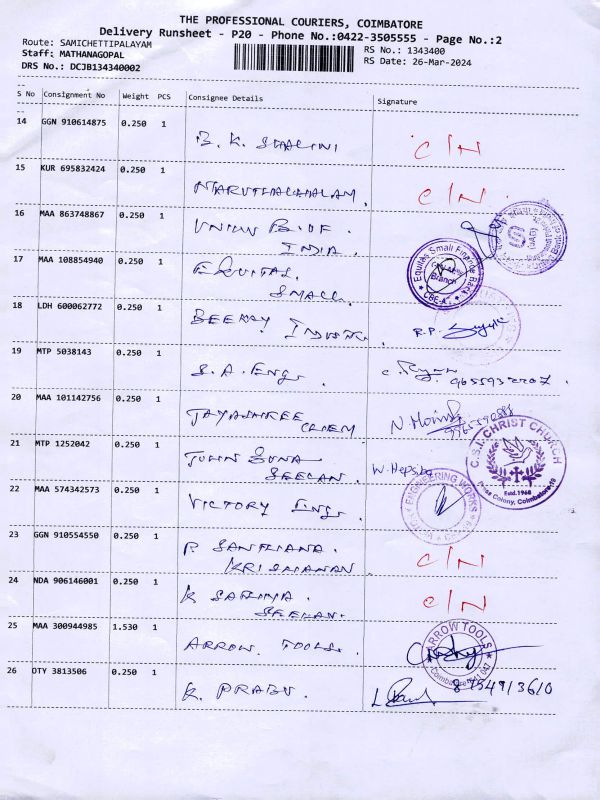 THE PROFESSIONAL COURIERS, COIMBATORE
Delivery Runsheet - P20 - Phone No.:0422-3505555 - Page No.:2
Route: SAMICHETTIPALAYAM
Staff: MATHANAGOPAL
DRS No.: DCJB134340002
RS No.: 1343400
RS Date: 26-Mar-2024
S No Consignment No Weight PCS Consignee Details Signature
14 GGN 910614875 0.250 1
B. K. SHALINI C/N
15 KUR 695832424 0.250 1
MARUTHACHALAM. C/N
16 MAA 863748867 0.250 1
UNION B. OF.
INDIA.
17 MAA 108854940 0.250 1
EQUITAS.
SMALL.
Equitas Small Finance Bank
Branch
CBE-A
18 LDH 600062772 0.250 1
R.P.
19 MTP 5038143 0.250 1
S. A. Eng.
20 MAA 101142756 0.250 1
JAYASHREE
CHEM
21 MTP 1252042 0.250 1
JOHN
SEELAN.
W. Hepsiba
C.S.I. CHRIST CHURCH
Estd.1968
Colony, Coimbatore
22 MAA 574342573 0.250 1
VICTORY Eng.
ENGINEERING WORKS
23 GGN 910554550 0.250 1
P SANTHANA.
KRISHANAN C/N
24 NDA 906146001 0.250 1
K
SEELAN. C/N
25 MAA 300944985 1.530 1
ARROW. TOOLS.
ARROW TOOLS
Coimbatore
26 OTY 3813506 0.250 1
K. PRABU.